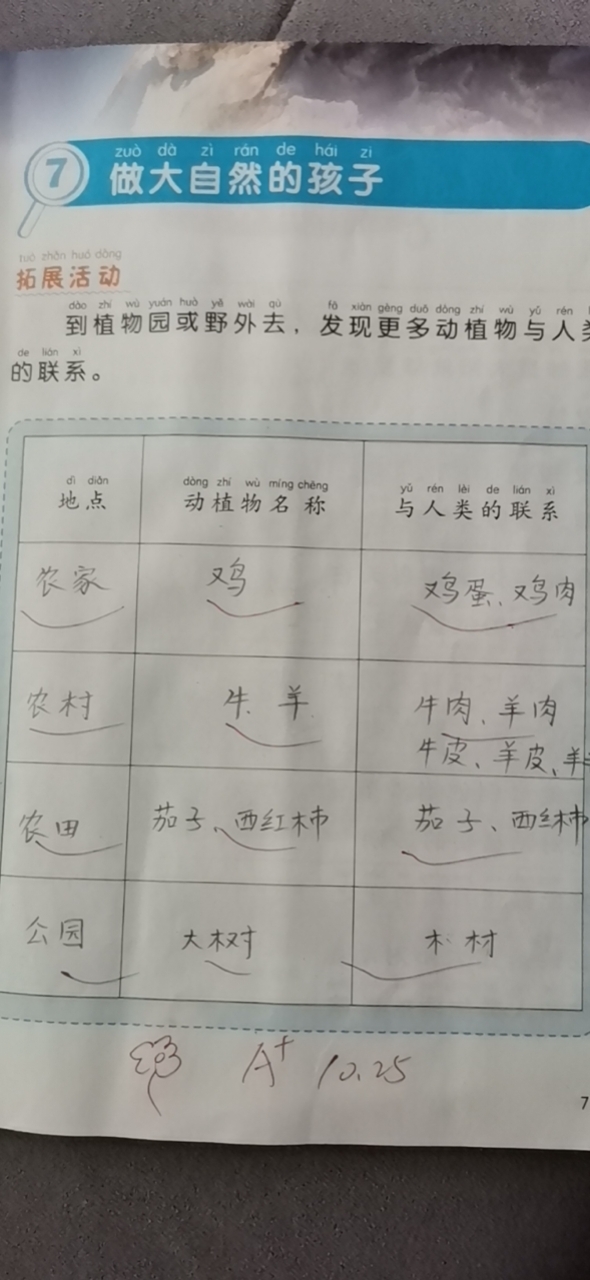 zuò dà zì rán de hái zi
7 做大自然的孩子
tuò zhǎn huó dòng
拓展活动
dào zhí wù yuán huò yě wài qù fā xiàn gèng duō dòng zhí wù yǔ rén
到植物园或野外去，发现更多动植物与人类
de lián xì
的联系。
dì diǎn dòng zhí wù míng chēng yǔ rén lèi de lián xì
地点 动植物名称 与人类的联系
农家 鸡 鸡蛋、鸡肉
农村 牛、羊 牛肉、羊肉
牛皮、羊皮、羊
农田 茄子、西红柿 茄子、西红柿
公园 大树 木材
A+ 10.25
7